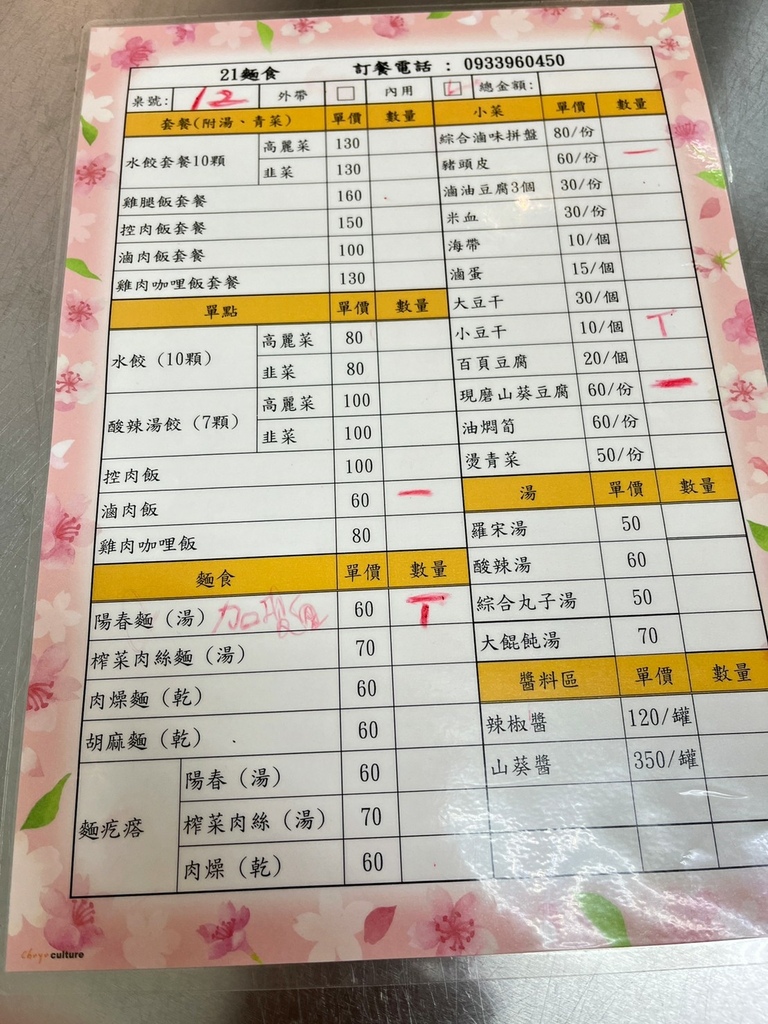 21麵食 訂餐電話 : 0933960450
桌號: 12 外帶 □ 內用 □ 總金額:
套餐(附湯、青菜) 單價 數量
水餃套餐10顆 高麗菜 130
韭菜 130
雞腿飯套餐 160
控肉飯套餐 150
滷肉飯套餐 100
雞肉咖哩飯套餐 130
單點 單價 數量
水餃（10顆） 高麗菜 80
韭菜 80
酸辣湯餃（7顆） 高麗菜 100
韭菜 100
控肉飯 100
滷肉飯 60 一
雞肉咖哩飯 80
麵食 單價 數量
陽春麵（湯） 60 T
榨菜肉絲麵（湯） 70
肉燥麵（乾） 60
胡麻麵（乾） 60
麵疙瘩 陽春（湯） 60
榨菜肉絲（湯） 70
肉燥（乾） 60
小菜 單價 數量
綜合滷味拼盤 80/份
豬頭皮 60/份 一
滷油豆腐3個 30/份
米血 30/份
海帶 10/個
滷蛋 15/個
大豆干 30/個
小豆干 10/個 T
百頁豆腐 20/個
現磨山葵豆腐 60/份 一
油燜筍 60/份
燙青菜 50/份
湯 單價 數量
羅宋湯 50
酸辣湯 60
綜合丸子湯 50
大餛飩湯 70
醬料區 單價 數量
辣椒醬 120/罐
山葵醬 350/罐
culture